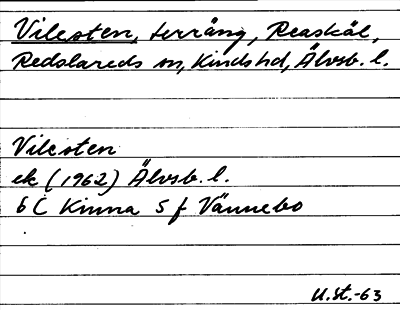 Vilesten, terräng, Reaskäl,
Redslareds sn, Kinds hd, Älvsb. l.
Vilesten
ek (1962) Älvsb. l.
6 C Kinna 5 f Vännebo
U.st.-63